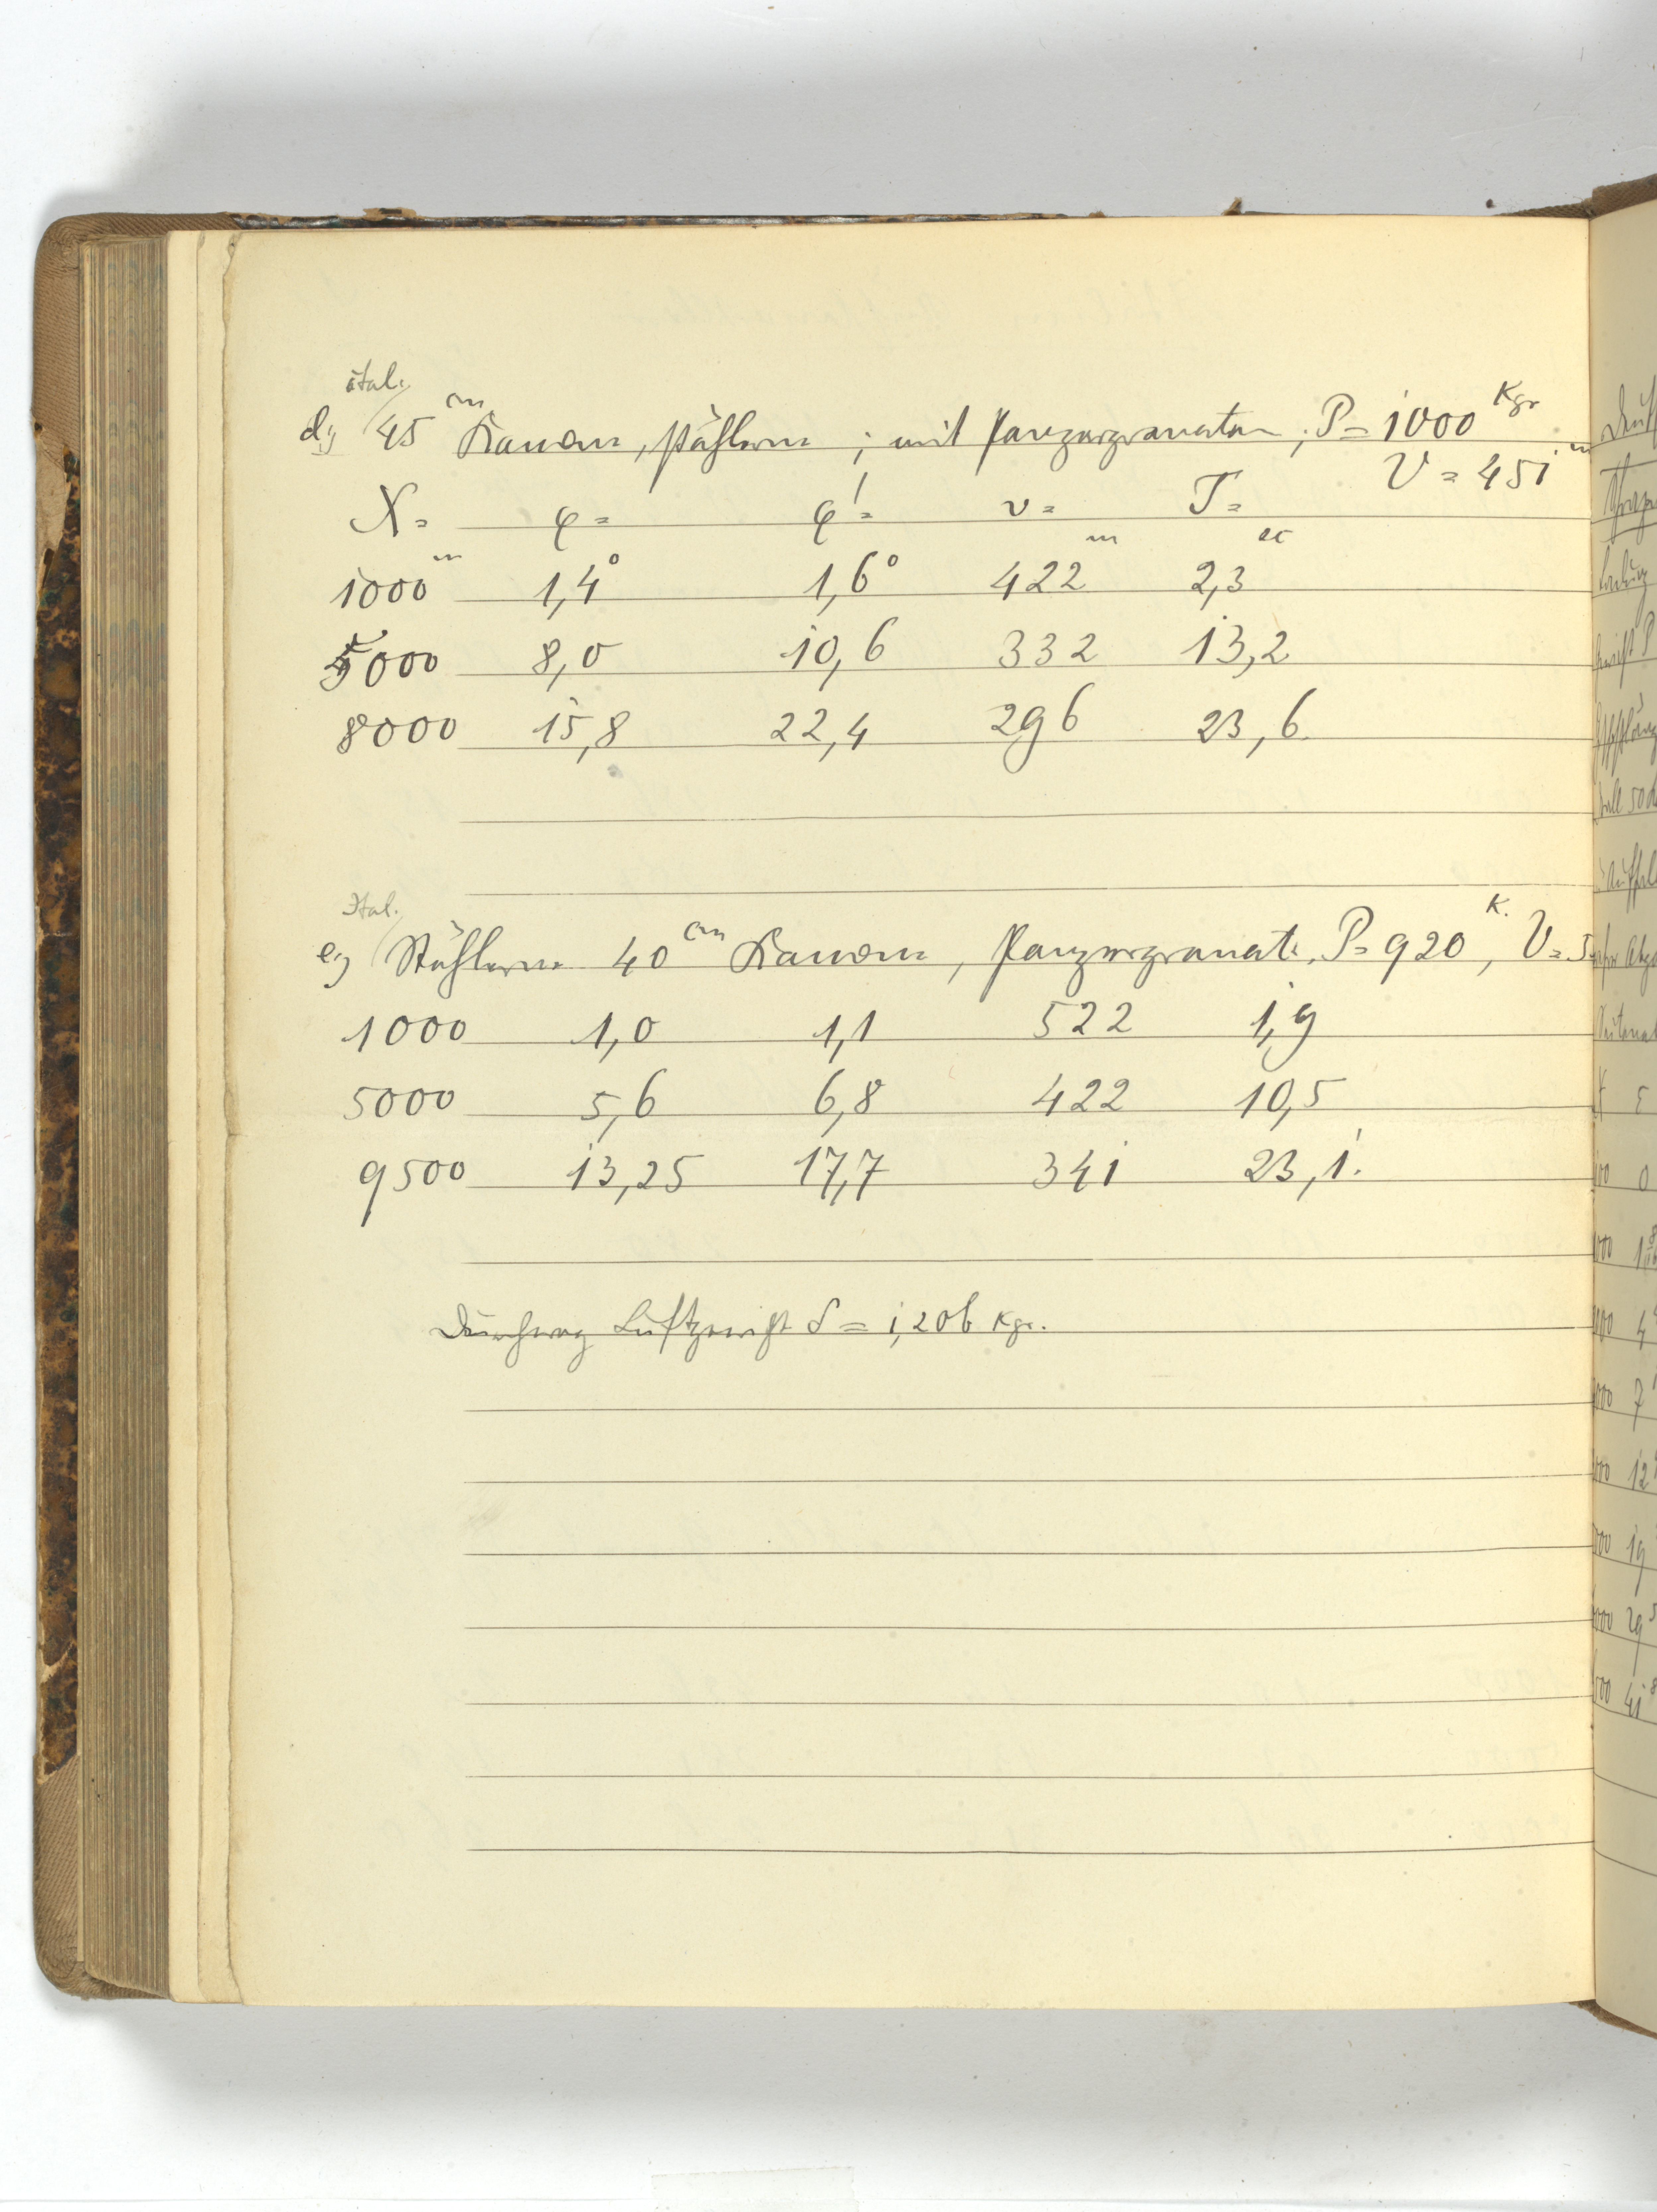 ital.
d) 45 cm Kanone, stählern ; mit Panzergranaten ; P = 1000 Kgr
V = 451 m
X = φ = φ' = v = T =
1000 m 1,4° 1,6° 422 m 2,3 sec
5000 8,0 10,6 332 13,2
8000 15,8 22,4 296 23,6
Ital.
e) Stählerne 40 cm Kanone, Panzergranate, P = 920 K., V = 5
1000 1,0 1,1 522 1,9
5000 5,6 6,8 422 10,5
9500 13,25 17,7 341 23,1.
Durchweg Luftgewicht δ = 1,206 Kgr.